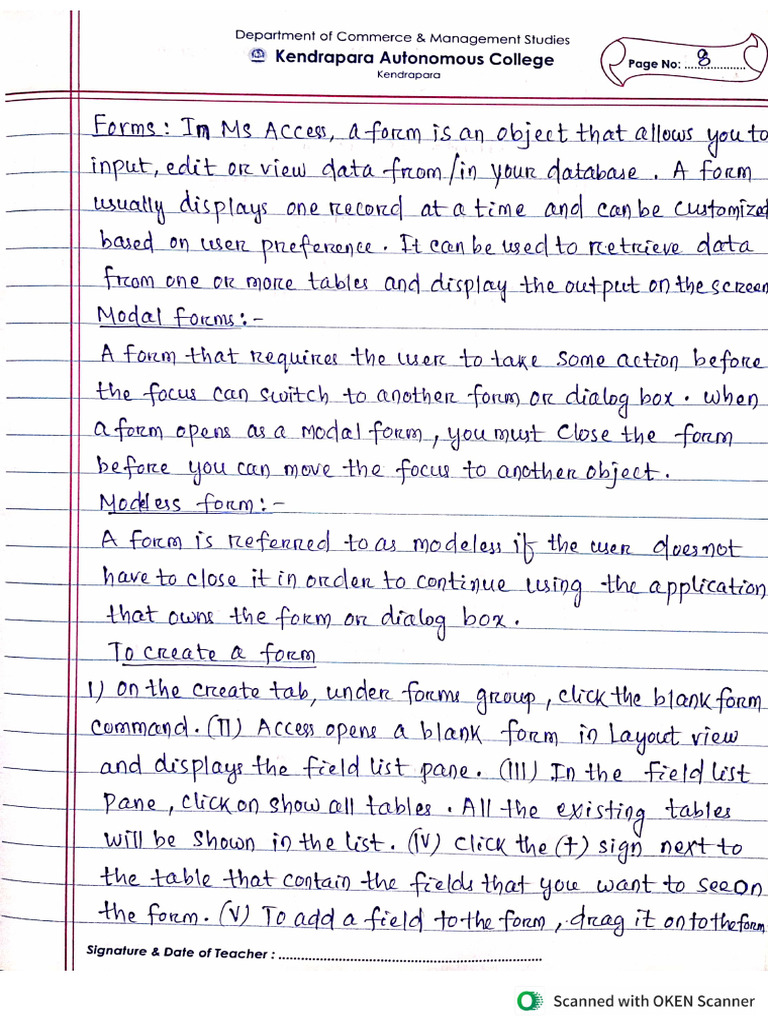 Department of Commerce & Management Studies
Kendrapara Autonomous College
Kendrapara
Page No: ........8............
Forms: In Ms Access, a form is an object that allows you to
input, edit or view data from/in your database. A form
usually displays one record at a time and can be customized
based on user preference. It can be used to retrieve data
from one or more tables and display the output on the screen
Modal forms:-
A form that requires the user to take some action before
the focus can switch to another form or dialog box. When
a form opens as a modal form, you must close the form
before you can move the focus to another object.
Modeless form:-
A form is referred to as modeless if the user does not
have to close it in order to continue using the application
that owns the form or dialog box.
To create a form
I) On the create tab, under forms group, click the blank form
command. (II) Access opens a blank form in Layout view
and displays the field list pane. (III) In the field list
Pane, click on show all tables. All the existing tables
will be shown in the list. (IV) Click the (+) sign next to
the table that contain the fields that you want to see on
the form. (V) To add a field to the form, drag it onto the form
Signature & Date of Teacher : ................................................................
Scanned with OKEN Scanner